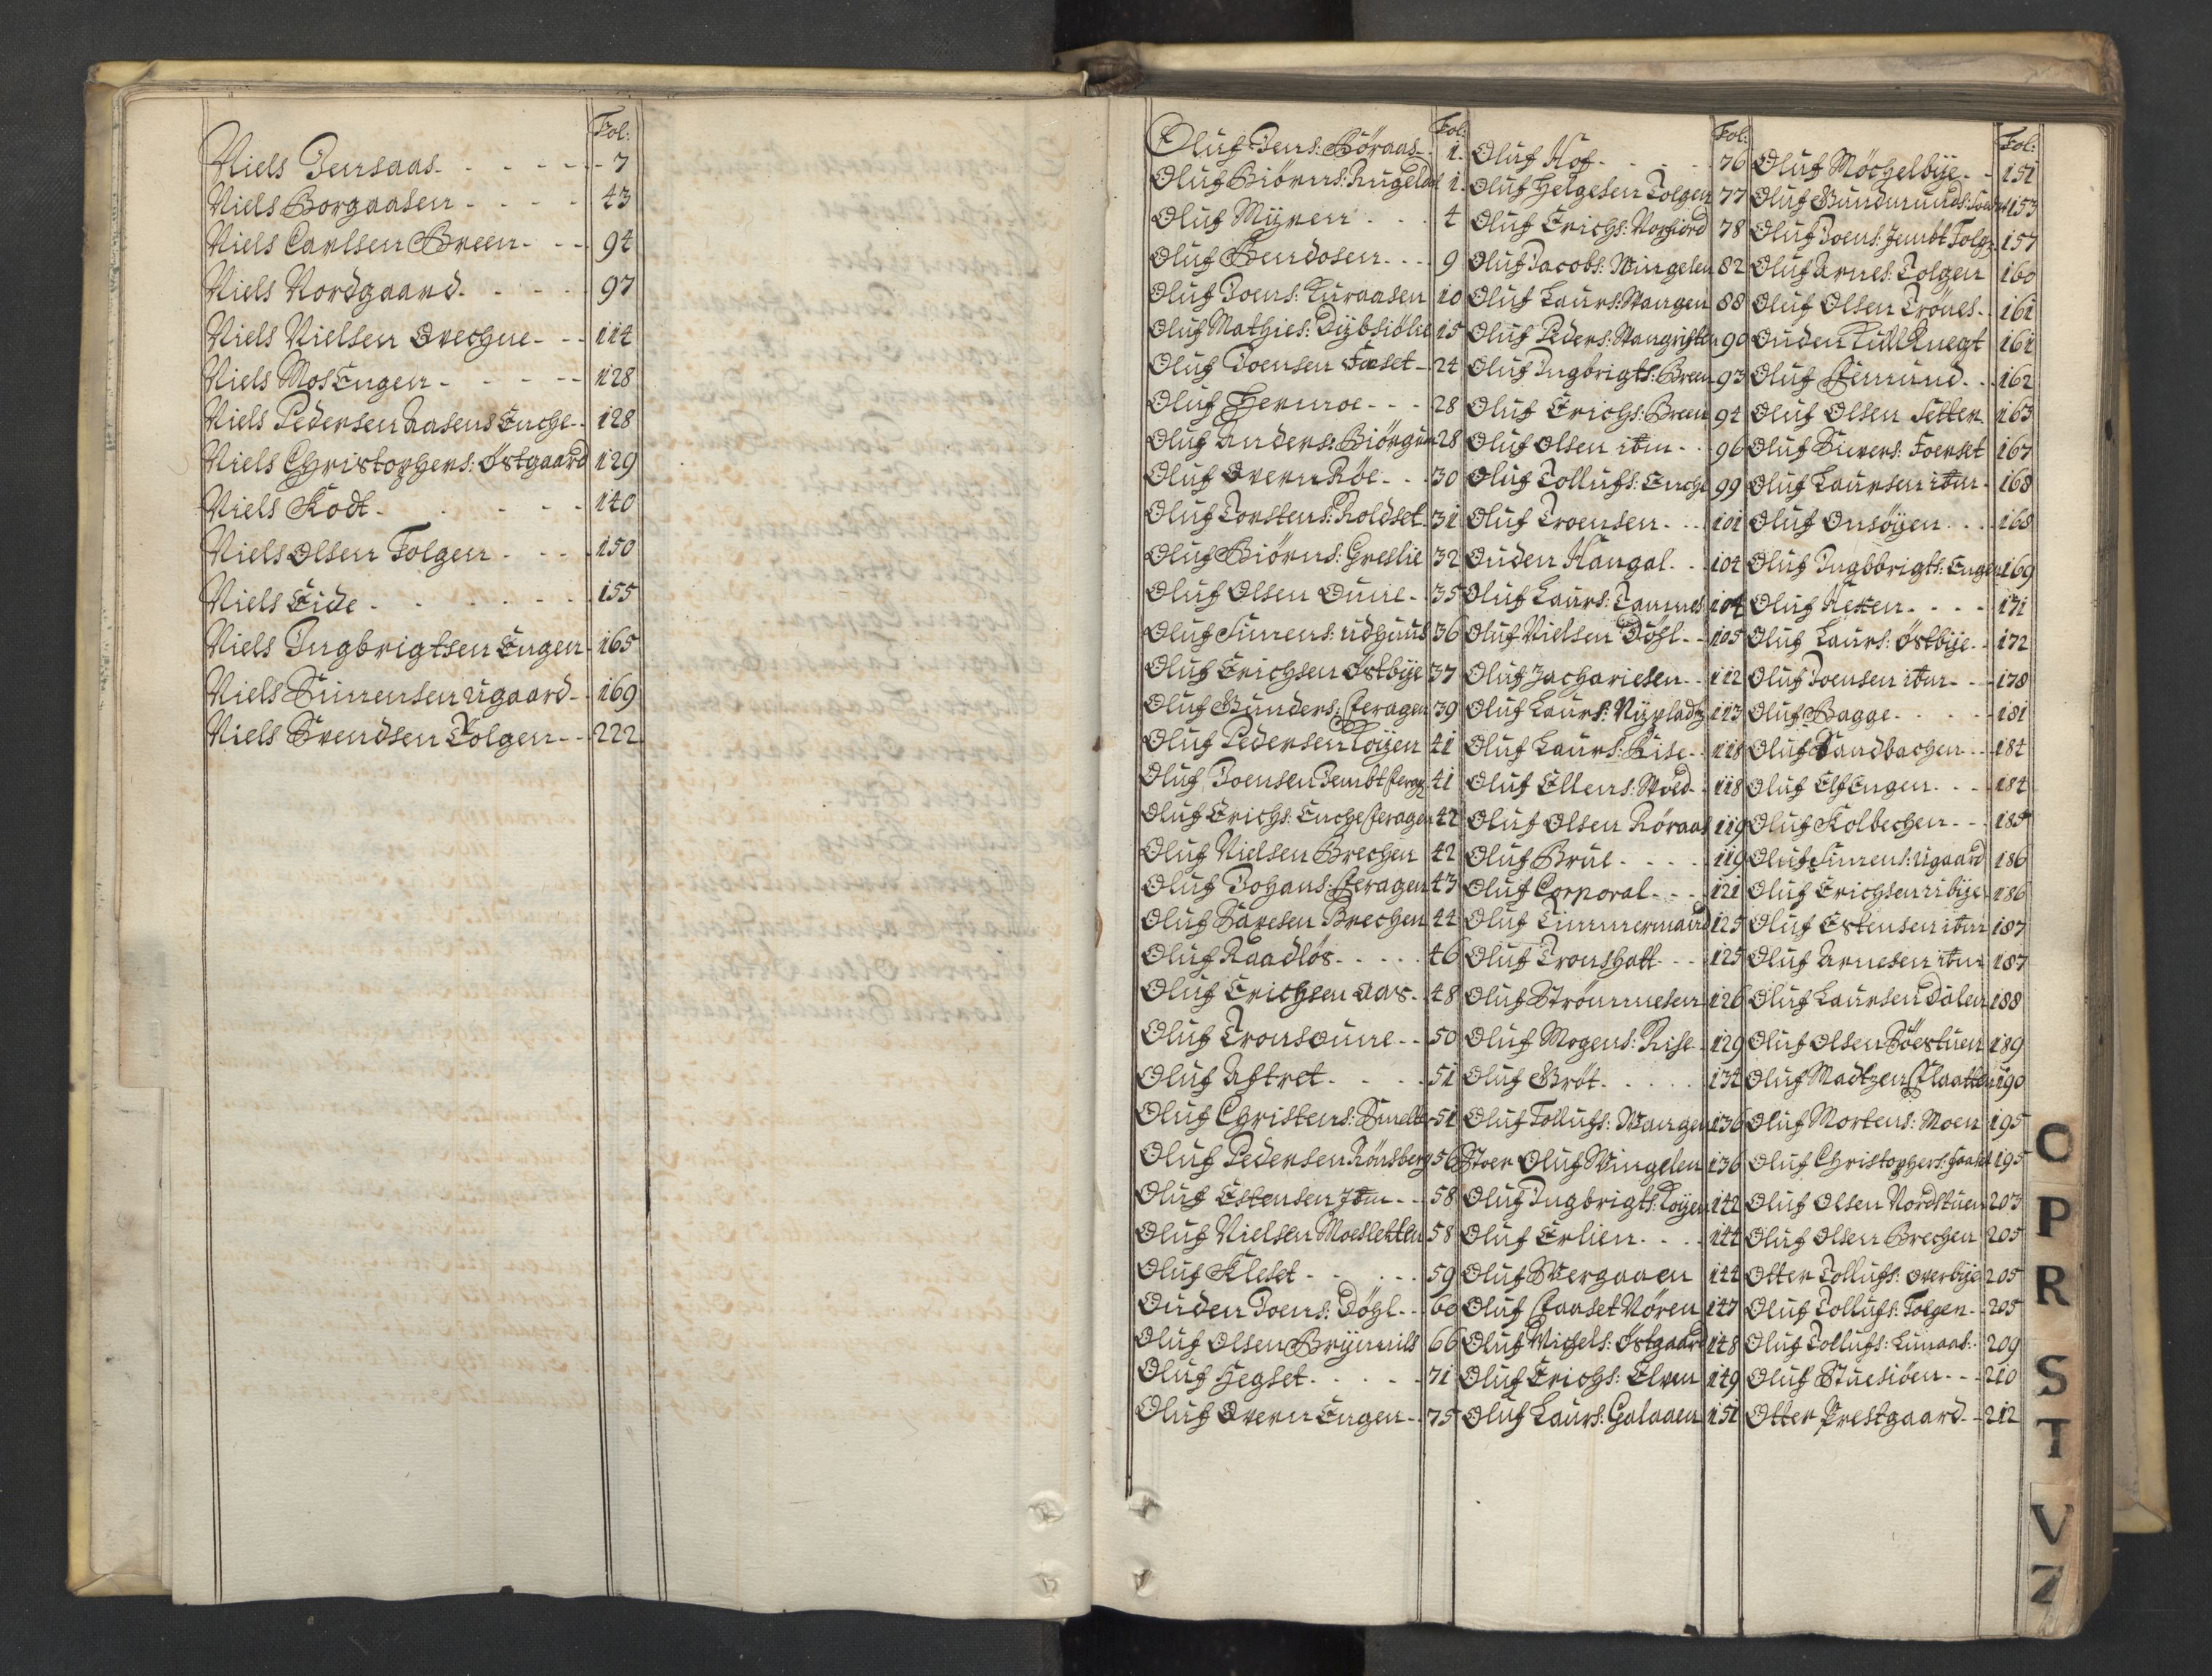 Fol:
Niels Jensaas - - - - - 7
Niels Borgaasen - - - - 43
Niels Carlsen Breen - - - 94
Niels Nordgaard - - - - 97
Niels Nielsen Overhue - - - 114
Niels MosEngen - - - - - 128
Niels Pedersen Aasens Enche - - 128
Niels Christophers: Östgaard 129
Niels Kodt - - - - - 140
Niels Olsen Folgen - - - - 150
Niels Eide - - - - - - 155
Niels Ingbrigtsen Engen - 165
Niels Simensen Ugaard - - 169
Niels Svendsen Tolgen - - 222
Fol:
Oluf Jens: Röraas - - 1.
Oluf Biörns: Rugeldal 1.
Oluf Myren - - - 4
Oluf Bendosen - - - 9
Oluf Joens: Kuraasen 10
Oluf Mathies: Dybsiölie 15
Oluf Joensen Faset - 24
Oluf Hermoe - - - 28
Oluf Anders: Biörgen 28
Oluf Overn Röe - - - 30
Oluf Torstens: Roldset 31
Oluf Biörns: Greslie 32
Oluf Olsen Oune - 35
Oluf Simens: Udhuus 36
Oluf Erichsen Östbye 37
Oluf Gunders: Feragen 39
Oluf Pedersen Loyen 41
Oluf Joensen Jembt Ferag: 41
Oluf Erichs: Enche Feragen 42
Oluf Nielsen Brechen 42
Oluf Johans: Feragen 43
Oluf Saresen Brechen 44
Oluf Raadlös - - - - 46
Oluf Erichsen Aas - 48
Oluf Tronsoune - - 50
Oluf Aftret - - - - 51
Oluf Christens: Smelt 51
Oluf Pedersen Rönsberg 56
Oluf Estensen Itm - - 58
Oluf Nielsen Moesletten 58
Oluf Kleset - - - - 59
Ouden Joens: Döhl - - 60
Oluf Olsen Brynnils 66
Oluf Hegset - - - - - 71
Oluf Overn Engen - - 75
Fol:
Oluf Hof - - - - - 76
Oluf Helgesen Tolgen 77
Oluf Erichs: Norfiord 78
Oluf Jacobs: Wingelen 82
Oluf Laurs: Wangen 88
Oluf Peders: Wangriften 90
Oluf Ingbrigts: Breen 93
Oluf Erichs: Breen 94
Oluf Olsen itm - - 96
Oluf Tollufs: Enche 99
Oluf Troensen - - - 101
Ouden Haugal - - 104
Oluf Laurs: Tamnes 104
Oluf Nielsen Döhl - - 105
Oluf Zachariesen - - 112
Oluf Laurs: Nypladtz 113
Oluf Laurs: Rise - - 118
Oluf Ellens: Wold - - 118
Oluf Olsen Röraas 119
Oluf Brue - - - - 119
Oluf Corporal - - - 121
Oluf Timmermand 125
Oluf Tronshatt - - - 125
Oluf Strömmesen 126
Oluf Mogens: Rise - 129
Oluf Gröt - - - - - 134
Oluf Tollufs: Wangen 136
Stoer Oluf Wingelen 136
Oluf Ingbrigts: Loyen 142
Oluf Erlien - - - - 144
Oluf Wergaaen 144
Oluf Faaset Nören 147
Oluf Michels: Östgaard 148
Oluf Erichs: Elven 149
Oluf Laurs: Galaaen 151
Fol:
Oluf Möchelbye - - 151
Oluf Gundmunds: 153
Oluf Joens: Jembt Folg: 157
Oluf Arnes: Tolgen 160
Oluf Olsen Trönes - - 161
Ouden Kullknegt 161
Oluf Femund - - 162
Oluf Olsen Setter - 163
Oluf Sivers: Foerset 167
Oluf Laursen itm - 168
Oluf Onsöyen - - - 168
Oluf Ingbbrigts: Engen 169
Oluf Neken - - - - 171
Oluf Laurs: Östbye - - 172
Oluf Joensen itm - - - 178
Oluf Bagge - - - - - 181
Oluf Sandbachen - - - 184
Oluf ElfEngen - - - 184
Oluf Kolbechen - - - 185
Oluf Simens: Ugaard 186
Oluf Erichsen ibye 186
Oluf Estensen itm 187
Oluf Arnesen itm 187
Oluf Laursen Dalen 188
Oluf Olsen Söestuen 189
Oluf Madtzen Flaatten 190
Oluf Mortens: Moen 195
Oluf Christophers: 195
Oluf Olsen Nordstuen 203
Oluf Olsen Brechen 205
Otter Tollufs: overbye 205
Oluf Tollufs: Folgen - - 205
Oluf Tollufs: Lunaas - - 209
Oluf Stuesiöen - - - 210
Otter Prestgaard - - 212
O
P
R
S
T
V
Z